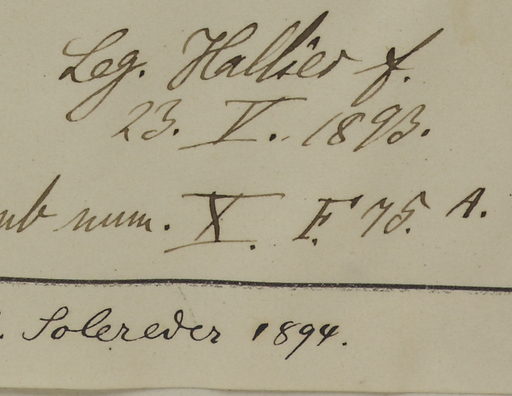 Leg. Hallier f.
23. V. 1893.
sub num. X. F. 75. A.
. Solereder 1894.